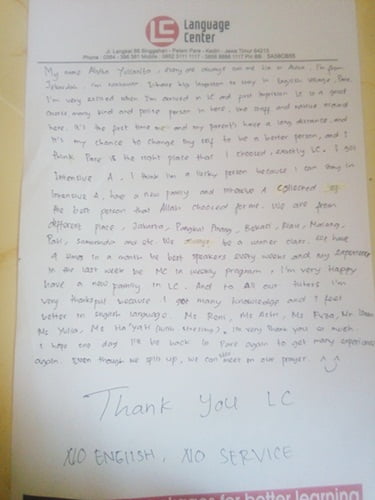 LC Language
Center
Jl. Langkat 88 Singgahan - Pelem Pare - Kediri - Jawa Timur 64213
My name Alisha, every one always call me Lisa or Alisha, I'm from
Jakarta, I'm
I'm very excited when I'm arrived in LC and first impression LC is a good
course many kind and polite person in here, the staff and around
here. It's the first time me and my parent's have a long distance, and
It's my chance to change my self to be a better person, and I
think Pare is the right place that I choosed, exactly LC. I got
Intensive A, I think I'm a lucky person because I can stay in
Intensive A, have a new family and Intensive A collected of
the best person that Allah choosed for me. We are from
different place, Jakarta, Pangkal Pinang, Bekasi, Riau, Malang,
Palu, Samarinda and etc. We always be a winner class. We have
4 times in a month be best speakers every weeks and my experience
in the last week be MC in weekly program, I'm very happy
have a new family in LC. And to all our tutors I'm
very thankful because I got many knowledge and I feel
better in English language. Ms Roni, Ms Ms Evza, Mr
Ms Yulia, Ms Ha'yati (with ), I'm very thank you so much.
I hope one day I'll be back to Pare again to get many experience
again. Even though we split up, we can still meet in our prayer. ^_^
Thank You LC
NO ENGLISH, NO SERVICE
for better learning